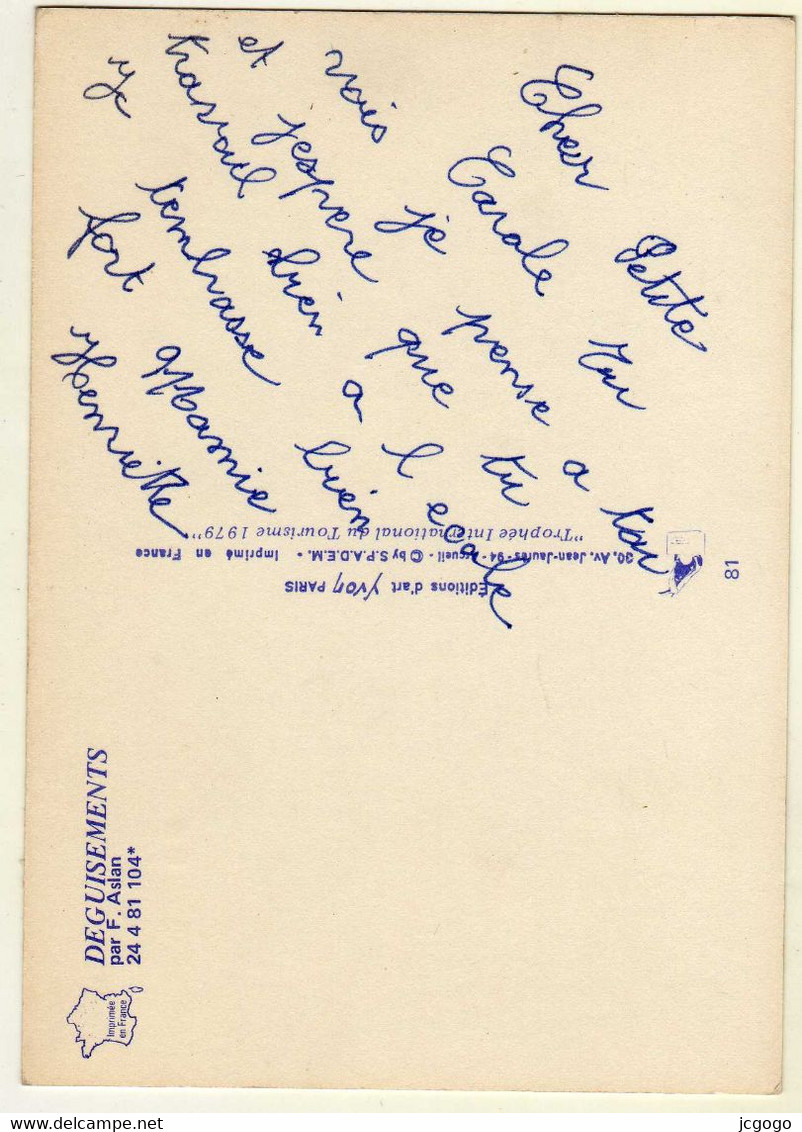 Cheer Petite
Carole tu
vois je pense a toi
et jespere que tu
travail bien a l ecole
Je tembrasse bien
fort Mamie
Henriette
"Trophée International du Tourisme 1979"
30, Av. Jean-Jaurès - 94 - Arcueil - © by S.P.A.D.E.M. - Imprimé en France
Éditions d'art Yvon PARIS
81
DEGUISEMENTS
par F. Aslan
24 4 81 104*
Imprimée
en France
delcampe.net
jcgogo